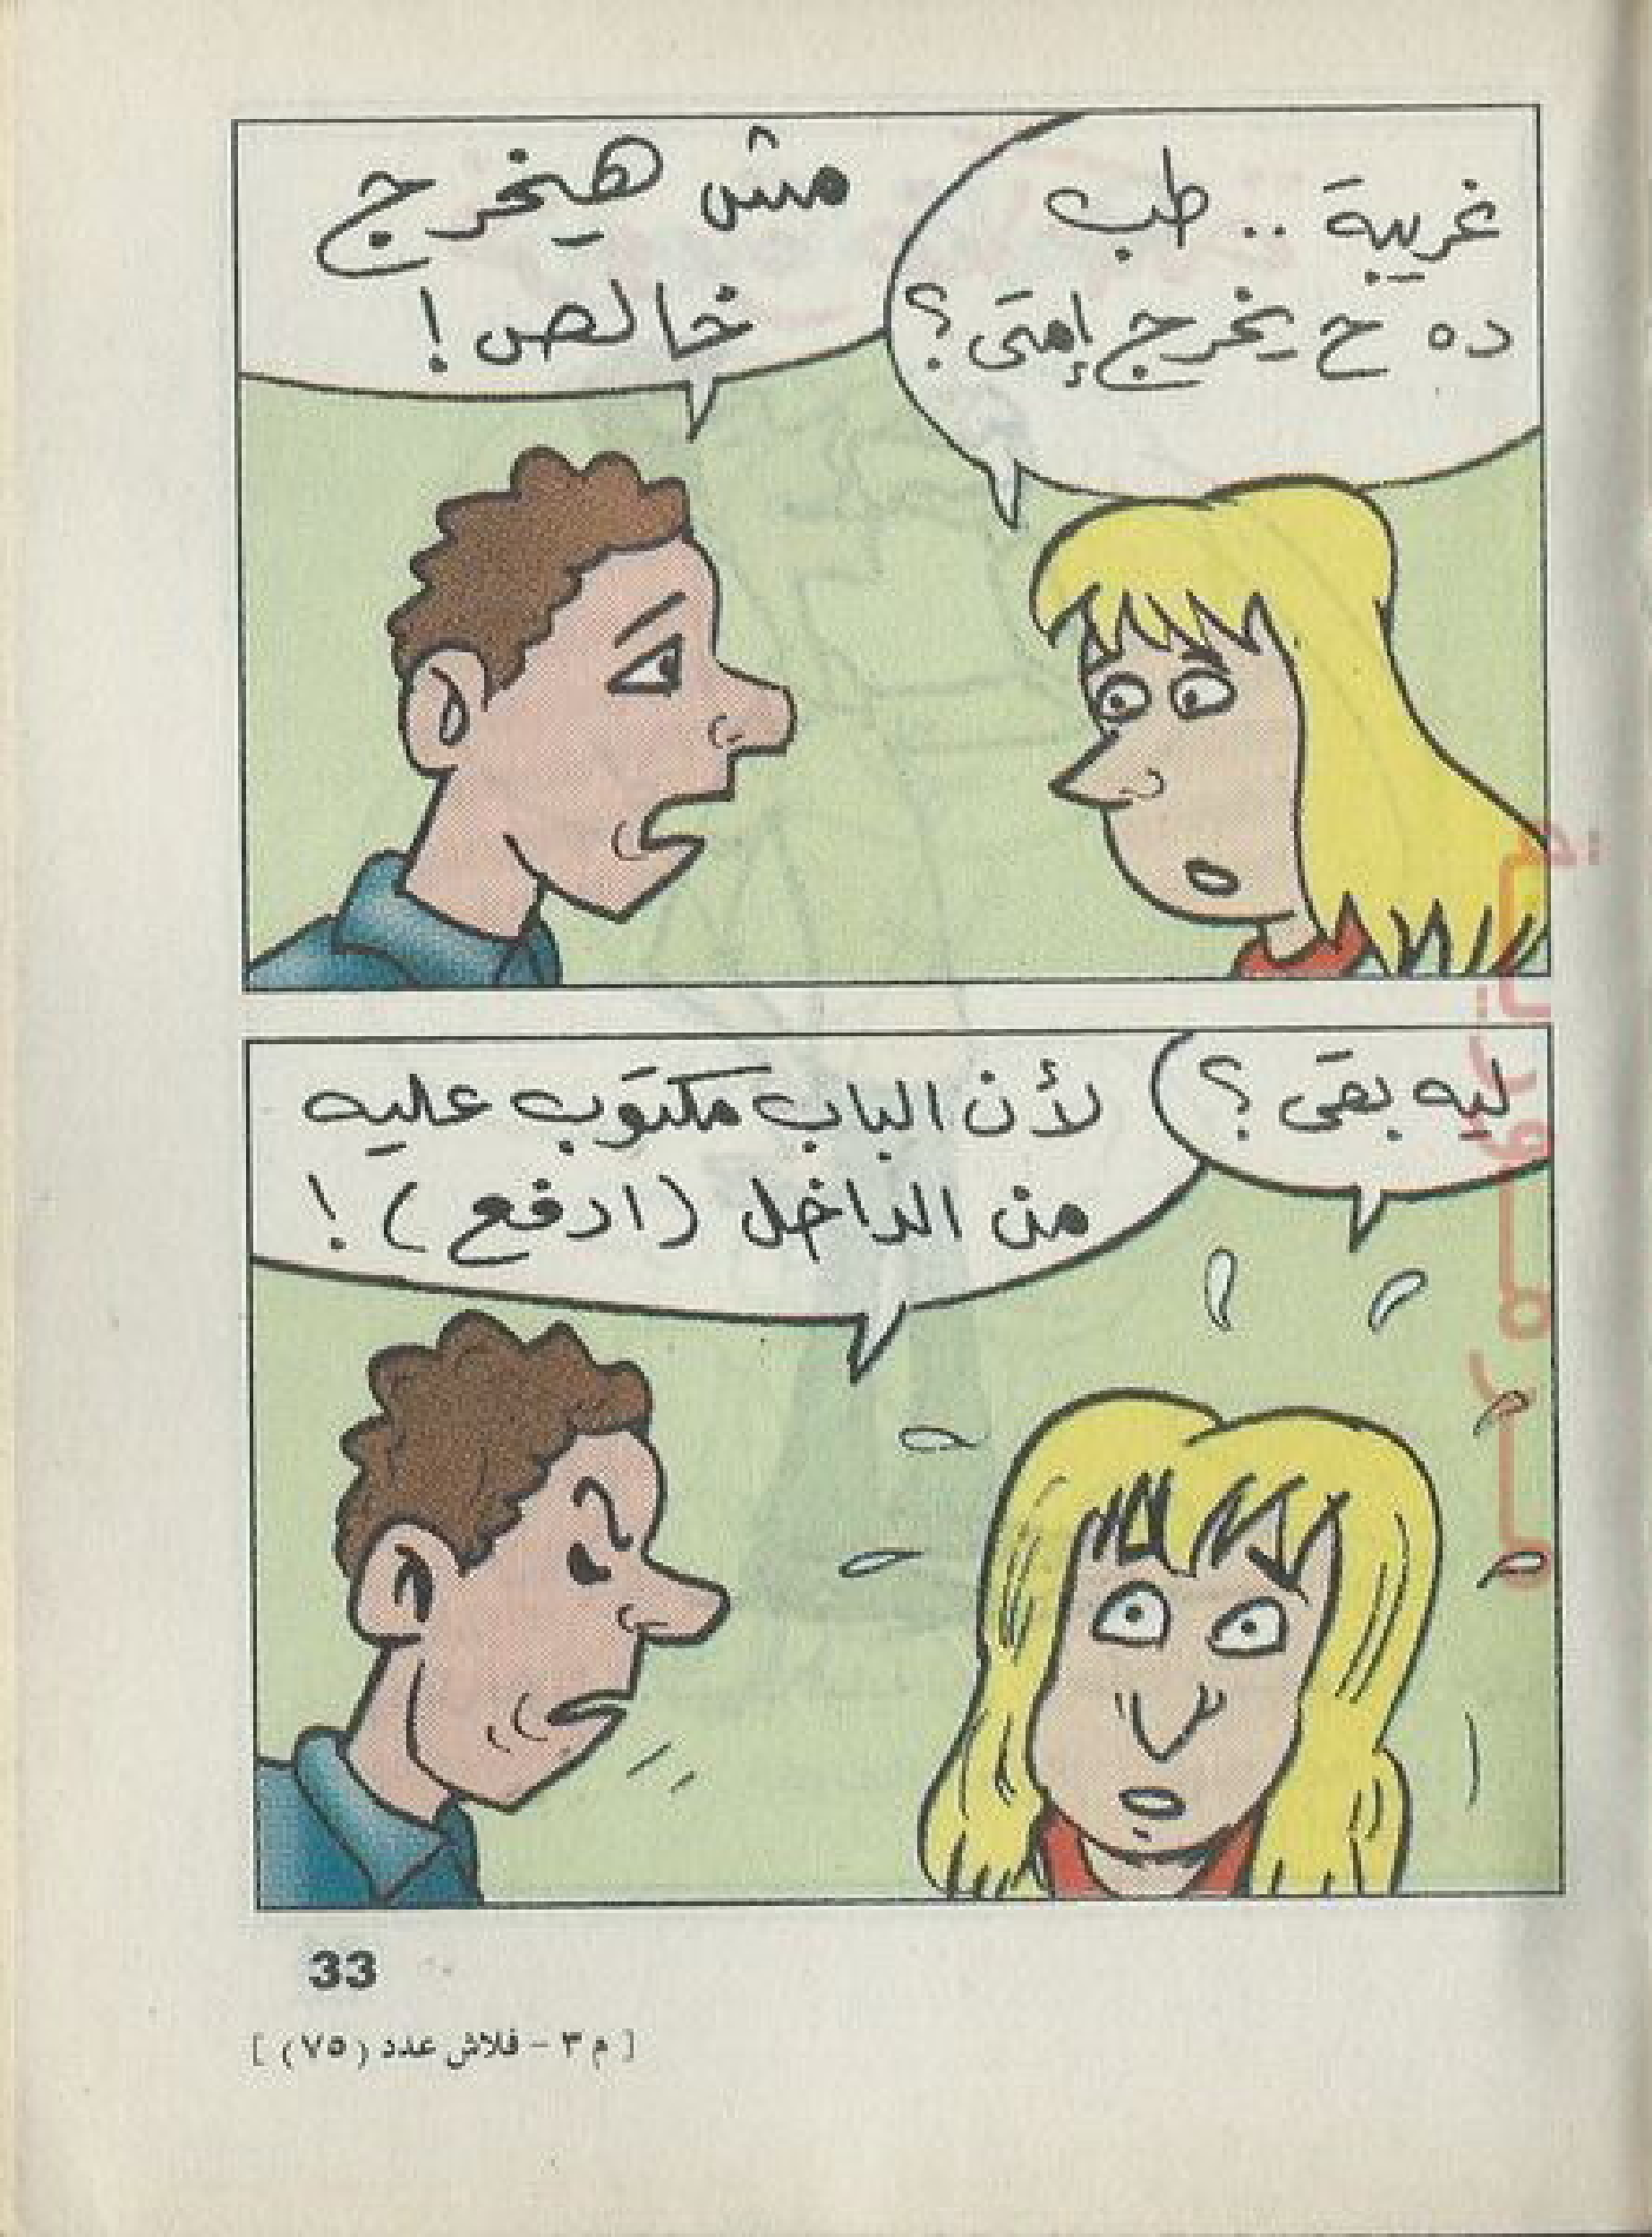 غريبة .. طب
ده ح يخرج إمتى؟
مش هيخرج
خالص!
ليه بقى؟
لأن الباب مكتوب عليه
من الداخل (ادفع)!
33
[ م ٣ - فلاش عدد (٧٥) ]